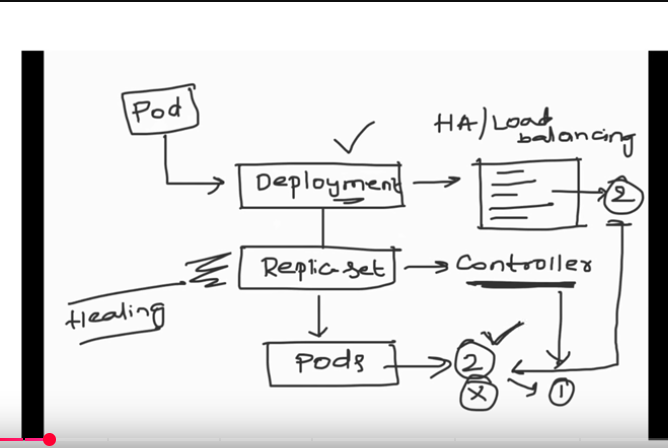 Pod
HA/Load
balancing
Deployment
2
Replicaset
Controller
Healing
Pods
2
X
1